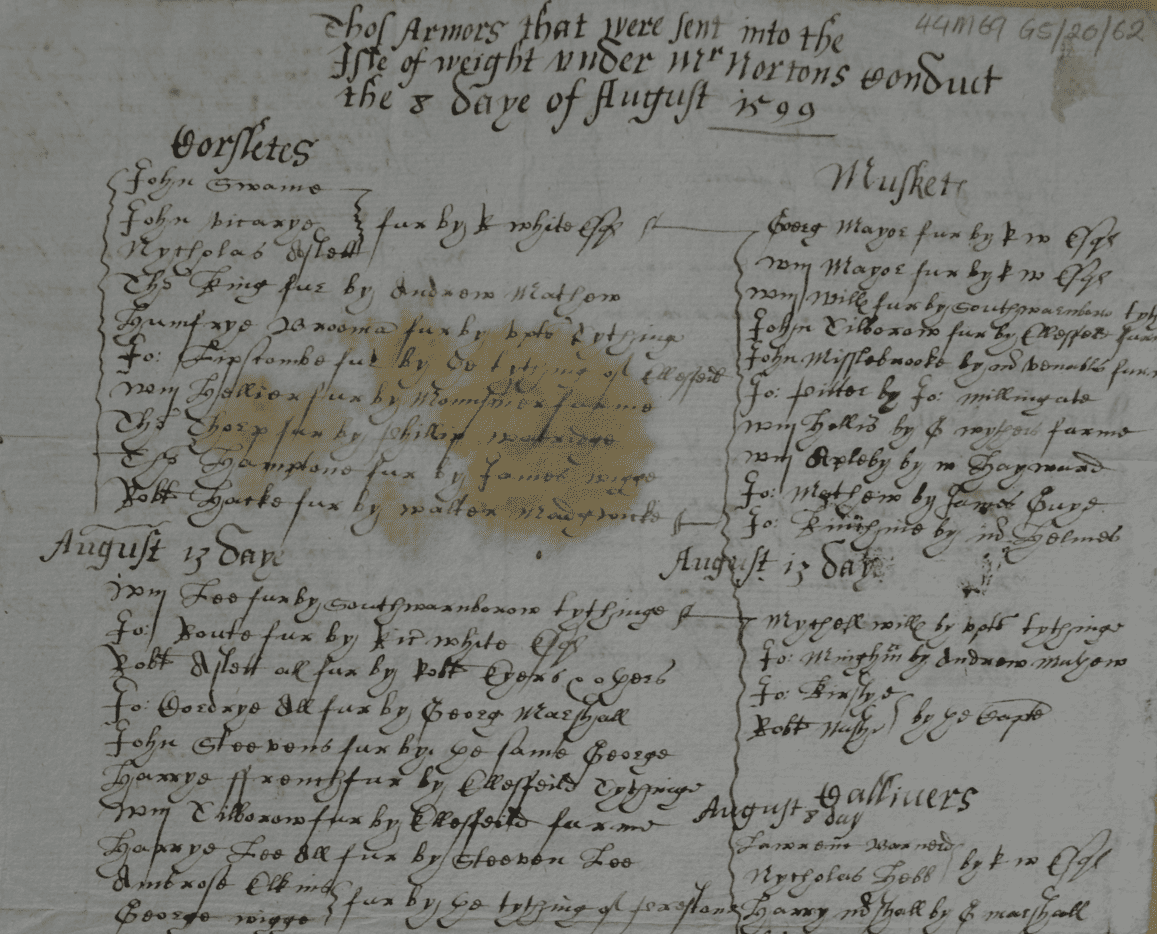 44M69 G5/20/62
Thos Armors that were sent into the
Isle of weight under Mr Nortons Conduct
the 8 daye of August 1599
Corsletes
John Swaine
John Vicarye
Nycholas Aslett
fur by R white Esqr
Tho King fur by Andrew Mathew
Humfrye fur by upto Tything
Jo: Lipscombe fur by tything of Ellesfeild
Wm Hellier fur by farme
Tho Thorp fur by Phillip
Tho Hamptone fur by James Wigge
Robt Hacke fur by Walter Madgwicke
August 13 daye
Wm Lee fur by Southwarnborow tythinge
Jo: Route fur by Ric white Esqr
Robt Aslett all fur by Robt Eyers &
Jo: Cordrye All fur by Georg Marshall
John Steevens fur by ye same George
Harrye ffrench fur by Ellesfeild Tythinge
Wm Tilborow fur by Ellesfeild farme
Harrye Lee All fur by Steeven Lee
Ambrose Elkins
George Wigge
fur by ye tything of
Musket
Georg Mayor fur by R W Esqr
Wm Mayor fur by R W Esqr
Wm Wills fur by Southwarnboro tyth
John Tilborow fur by Ellesfeild farm
John Misslebrooke by farm
Jo: by Jo: Millingate
Wm Hollis by G farme
Wm Apleby by W Hayward
Jo: Mathew by James Guye
Jo: by Helmes
August 13 daye
Mychell Wills by upto tythinge
Jo: by Andrew Mathew
Jo:
Robt
by ye
Callivers
August 8 day
Lawrenc Warner
Nycholas Hebb
by R W Esqr
Harry by G Marshall